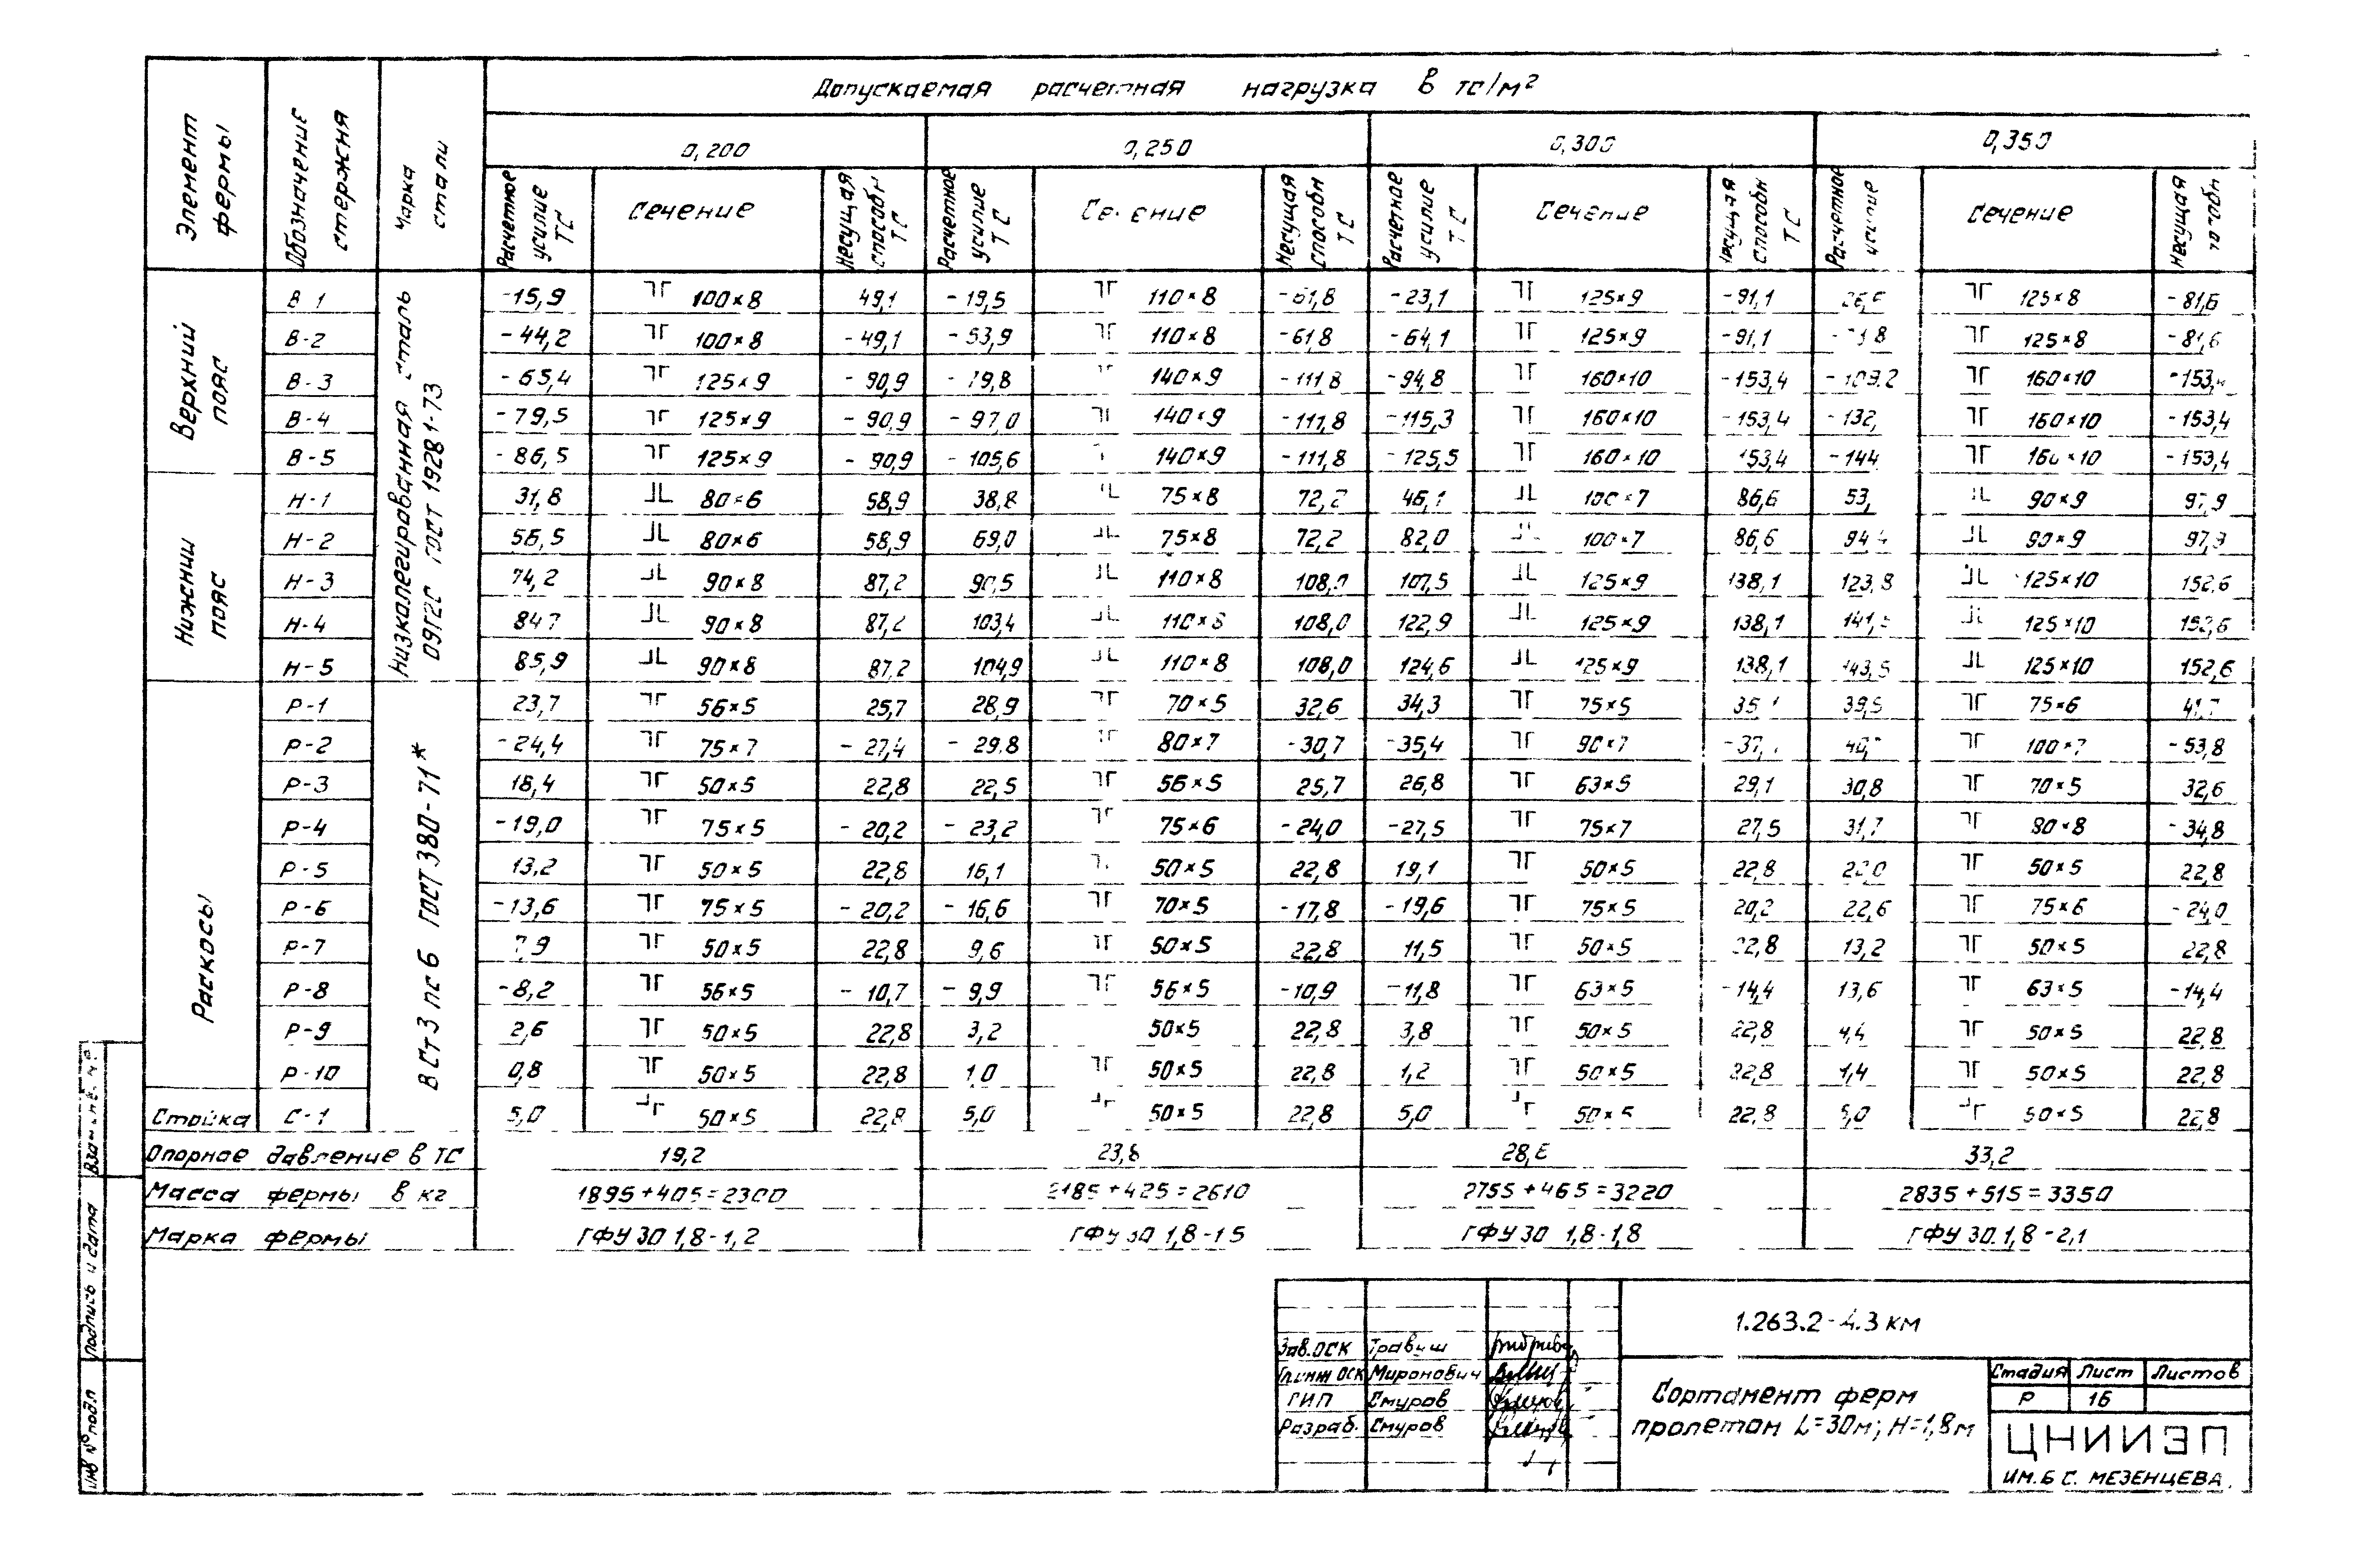 Допускаемая расчетная нагрузка в тс/м²
Элемент фермы Обозначение стержня Марка стали 0,200 0,250 0,300 0,350
Расчетное усилие ТС Сечение Несущая способн ТС Расчетное усилие ТС Сечение Несущая способн ТС Расчетное усилие ТС Сечение Несущая способн ТС Расчетное усилие Сечение Несущая способн
Верхний пояс
Низколегированная сталь 09Г2С ГОСТ 19281-73
В 1 -15,9 100×8 49,1 -19,5 110×8 -61,8 -23,1 125×9 -91,1 125×8 -81,6
В-2 -44,2 100×8 -49,1 -53,9 110×8 -61,8 -64,1 125×9 -91,1 125×8 -81,6
В-3 -65,4 125×9 -90,9 -79,8 140×9 -111,8 -94,8 160×10 -153,4 -109,2 160×10 -153,4
В-4 -79,5 125×9 -90,9 -97,0 140×9 -111,8 -115,3 160×10 -153,4 -132, 160×10 -153,4
В-5 -86,5 125×9 -90,9 -105,6 140×9 -111,8 -125,5 160×10 153,4 -144 160×10 -153,4
Нижний пояс
Н-1 31,8 80×6 58,9 38,8 75×8 72,2 46,1 100×7 86,6 53, 90×9 97,9
Н-2 56,5 80×6 58,9 69,0 75×8 72,2 82,0 100×7 86,6 94,4 90×9 97,9
Н-3 74,2 90×8 87,2 90,5 110×8 108,0 107,5 125×9 138,1 123,8 125×10 152,6
Н-4 84,7 90×8 87,2 103,4 110×8 108,0 122,9 125×9 138,1 141,5 125×10 152,6
Н-5 85,9 90×8 87,2 104,9 110×8 108,0 124,6 125×9 138,1 143,5 125×10 152,6
Раскосы
ВСт3 пс6 ГОСТ 380-71*
Р-1 23,7 56×5 25,7 28,9 70×5 32,6 34,3 75×5 35,1 39,5 75×6 41,7
Р-2 -24,4 75×7 -27,4 -29,8 80×7 -30,7 -35,4 90×7 -37, 40, 100×7 -53,8
Р-3 18,4 50×5 22,8 22,5 56×5 25,7 26,8 63×5 29,1 30,8 70×5 32,6
Р-4 -19,0 75×5 -20,2 -23,2 75×6 -24,0 -27,5 75×7 27,5 31,7 80×8 -34,8
Р-5 13,2 50×5 22,8 16,1 50×5 22,8 19,1 50×5 22,8 22,0 50×5 22,8
Р-6 -13,6 75×5 -20,2 -16,6 70×5 -17,8 -19,6 75×5 20,2 22,6 75×6 -24,0
Р-7 7,9 50×5 22,8 9,6 50×5 22,8 11,5 50×5 22,8 13,2 50×5 22,8
Р-8 -8,2 56×5 -10,7 -9,9 56×5 -10,9 -11,8 63×5 -14,4 13,6 63×5 -14,4
Р-9 2,6 50×5 22,8 3,2 50×5 22,8 3,8 50×5 22,8 4,4 50×5 22,8
Р-10 0,8 50×5 22,8 1,0 50×5 22,8 1,2 50×5 22,8 1,4 50×5 22,8
Стойка С-1 5,0 50×5 22,8 5,0 50×5 22,8 5,0 50×5 22,8 5,0 50×5 22,8
Опорное давление в ТС 19,2 23,8 28,6 33,2
Масса фермы в кг 1895+405=2300 2185+425=2610 2755+465=3220 2835+515=3350
Марка фермы ГФУ 30 1,8-1,2 ГФУ 30 1,8-1,5 ГФУ 30 1,8-1,8 ГФУ 30.1,8-2,1
Взам инв. №
Подпись и дата
Инв № подл
1.263.2-4.3 КМ
Зав.ОСК Травиш
Гл.инж ОСК Миронович
ГИП Смуров
Разраб. Смуров
Сортамент ферм
пролетом L=30м; H=1,8м
Стадия Лист Листов
Р 16
ЦНИИЭП
ИМ. Б С. МЕЗЕНЦЕВА.